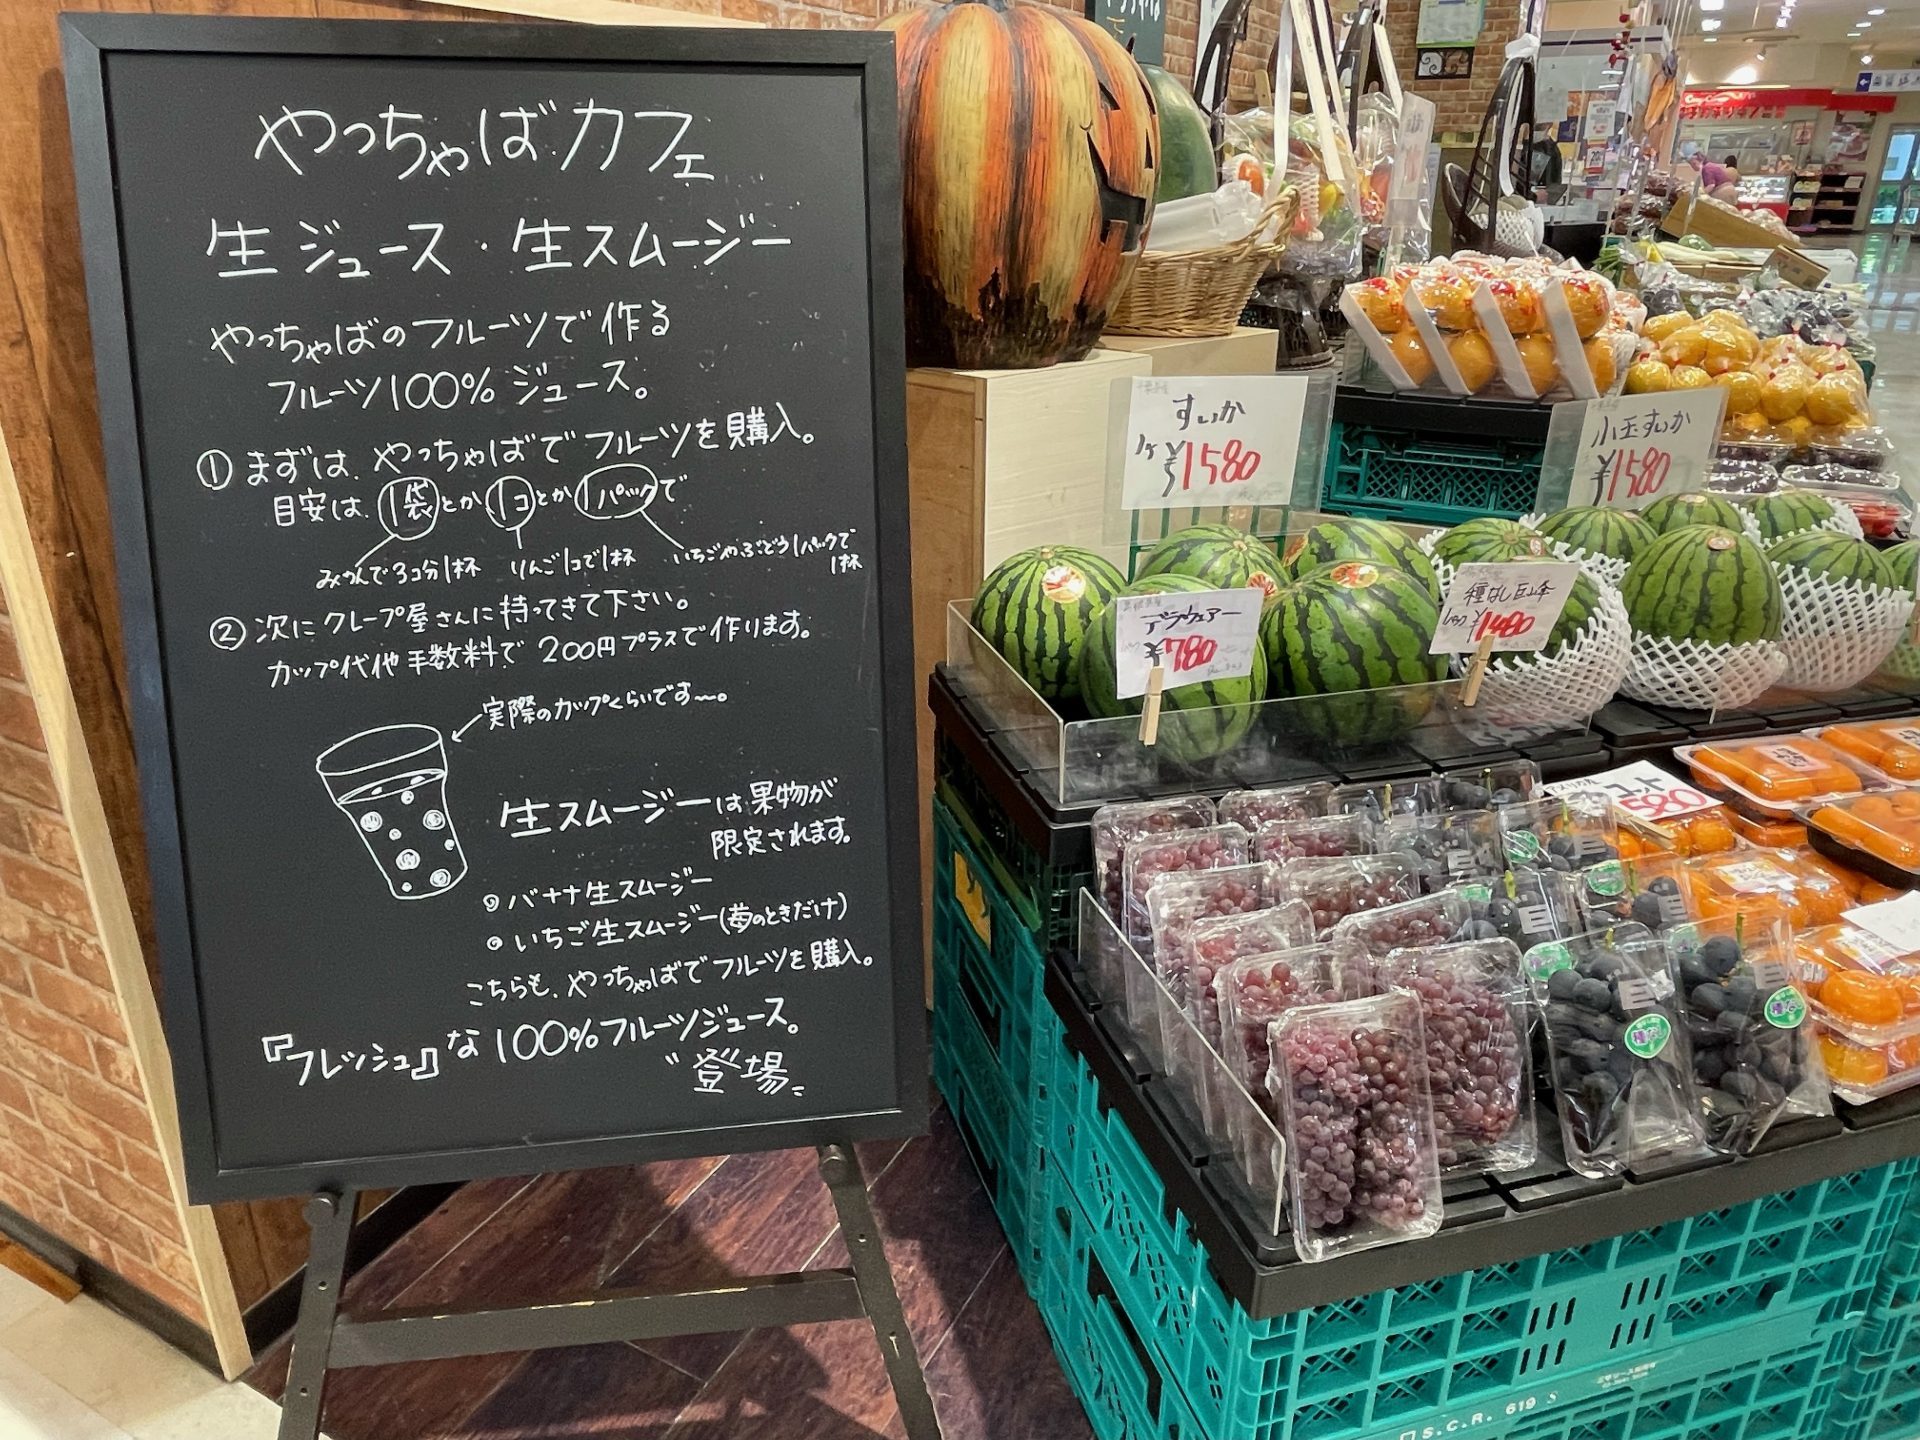 やっちゃばカフェ
生ジュース・生スムージー
やっちゃばのフルーツで作る
フルーツ100%ジュース。
①まずは、やっちゃばでフルーツを購入。
目安は、1袋とか1コとか1パックで
みかんで3コ分1杯
りんご1コで1杯
いちごやぶどう1パックで
1杯
②次にクレープ屋さんに持ってきて下さい。
カップ代他手数料で200円プラスで作ります。
実際のカップくらいです〜。
生スムージーは果物が
限定されます。
バナナ生スムージー
いちご生スムージー(苺のときだけ)
こちらも、やっちゃばでフルーツを購入。
『フレッシュ』な100%フルーツジュース。
〝登場〟
すいか
1ヶ ¥1580
小玉すいか
¥1580
デラウェアー
¥780
種なし巨峰
¥1480
580
S.C.R. 619 S